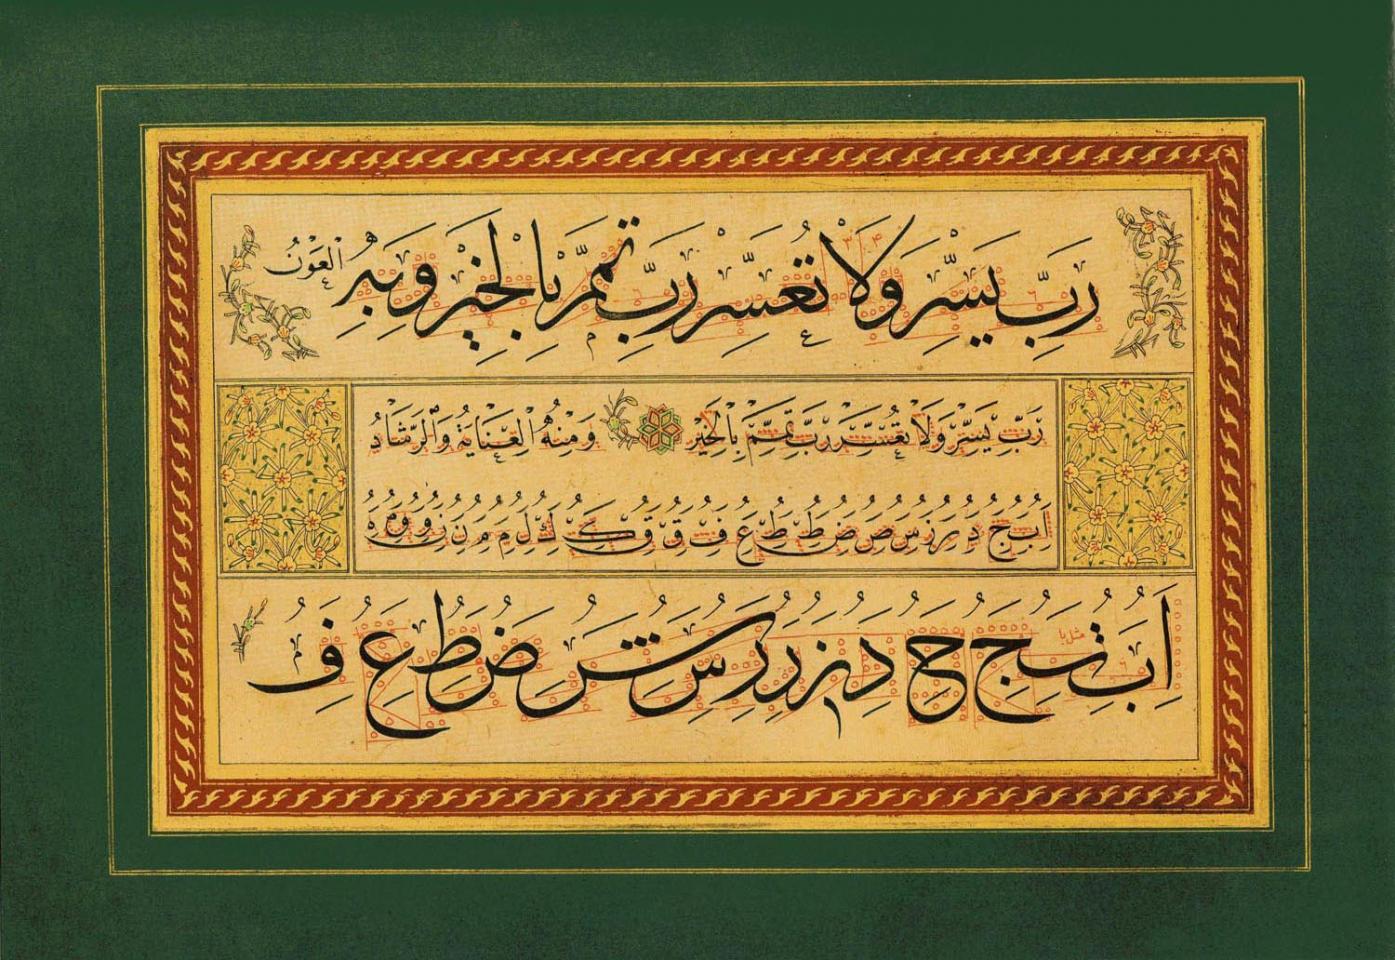 رَبِّ يَسِّرْ وَلَا تُعَسِّرْ رَبِّ تَمِّمْ بِالْخَيْرِ وَبِهِ الْعَوْنُ
رَبِّ يَسِّرْ وَلَا تُعَسِّرْ رَبِّ تَمِّمْ بِالْخَيْرِ وَمِنْهُ الْعِنَايَةُ وَالرَّشَادُ
ا ب ج د ر ز س ص ض ط ظ ع ف ق ق ك ك ل م م ن ن و و م ه
ا ب ت ج ح د ز ر ر س ش ض ط ع ف